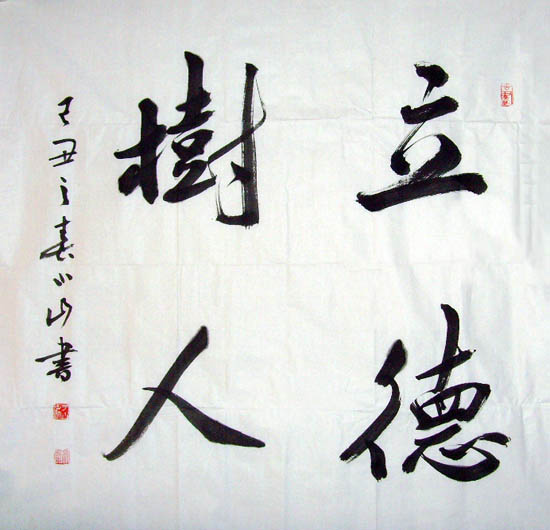 立德
樹人
己丑之春小山書